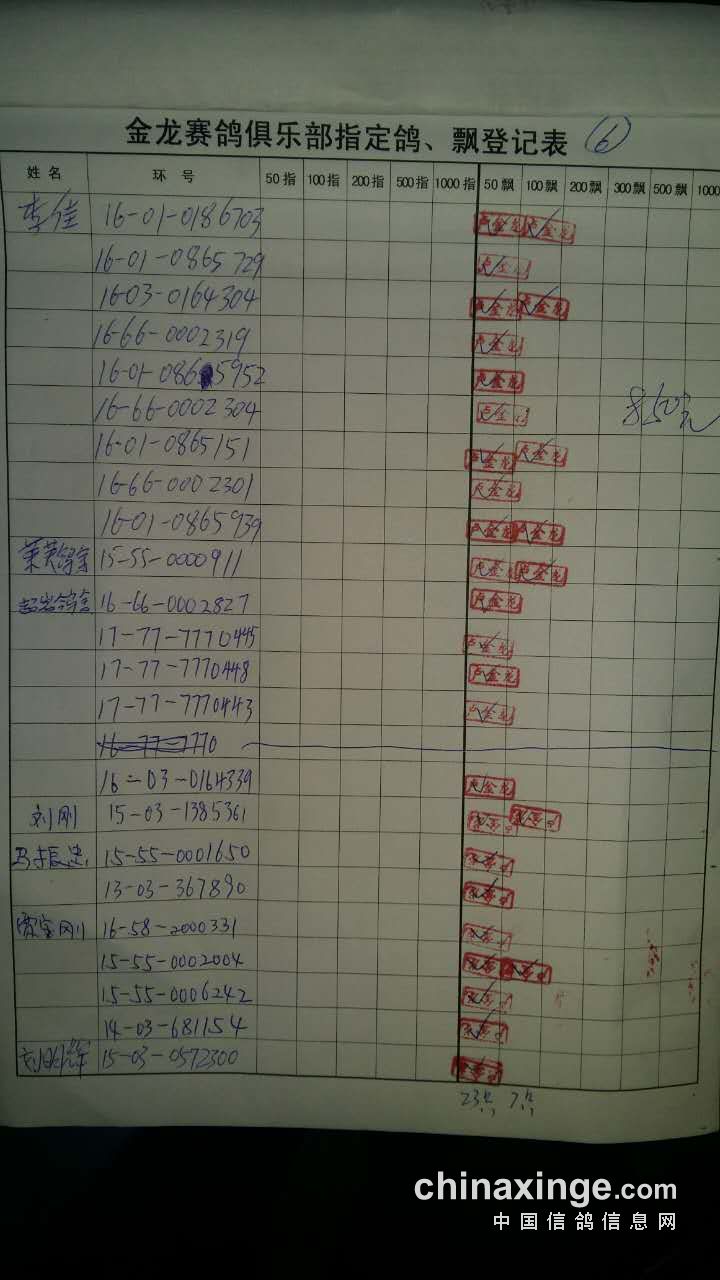 金龙赛鸽俱乐部指定鸽、飘登记表 6
姓名 环号 50指 100指 200指 500指 1000指 50飘 100飘 200飘 300飘 500飘 1000
李佳 16-01-0186703
16-01-0865729
16-03-0164304
16-66-0002319
16-01-0865952
16-66-0002304 850元
16-01-0865151
16-66-0002301
16-01-0865939
15-55-0000911
16-66-0002827
17-77-7770445
17-77-7770448
17-77-7770443
16-77-7770
16-03-0164339
刘刚 15-03-1385361
15-55-0001650
13-03-367890
贾宝刚 16-58-2000331
15-55-0002004
15-55-0006242
14-03-681154
15-03-0572300
23 7
chinaxinge.com
中国信鸽信息网